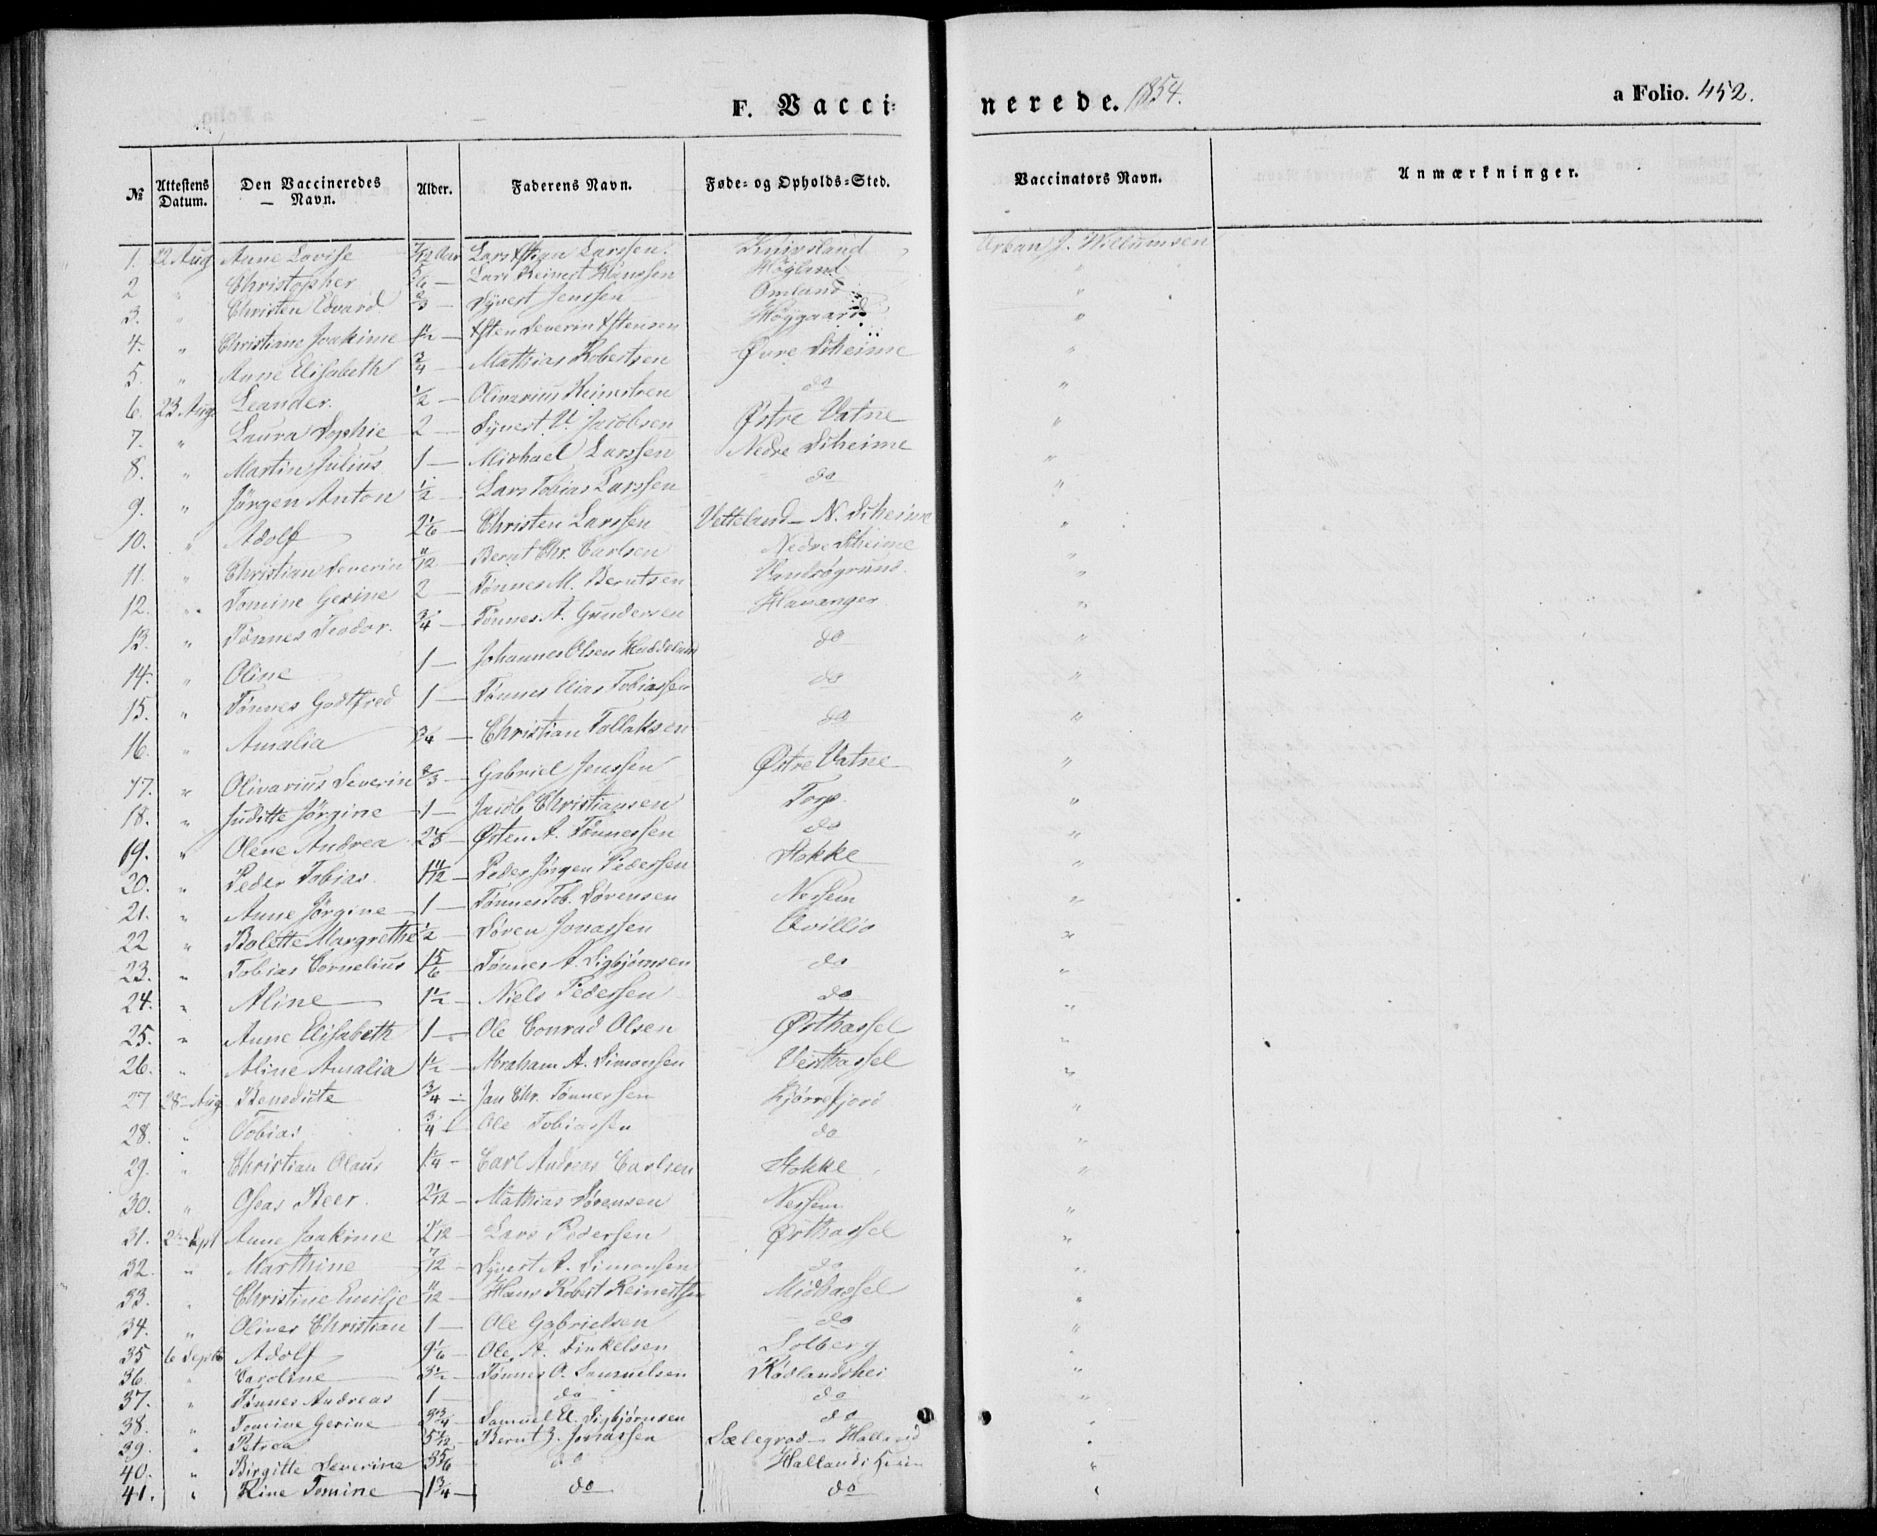 F. Vacci= nerede. 1854. a Folio. 452.
№ Attestens Datum. Den Vaccineredes Navn. Alder. Faderens Navn. Føde= og Opholds=Sted. Vaccinators Navn. Anmærkninger.
1. 22 Aug Anne Lovise 7/12 Aar Lars Larssen Knivsland Urban J. Willumsen
2 " Christopher 5/6 — Lars Reinert Hanssen Høgland "
3. " Christen Edvard 2/3 — Syvert Jenssen Omland "
4. " Christiane Joakime 1 1/2 — Østen Severin Østensen Høygaard "
5. " Anne Elisabeth 3/4 — Mathias Robertsen Øvre Skeime "
6. 23 Aug Leander. 1/2 — Olivarius Reinertsen do "
7. " Laura Sophie 2 — Syvert Jacobsen Østre Vatne "
8. " Martin Julius 1 — Michael Larssen Nedre Skeime "
9. " Jørgen Anton 1/2 — Lars Tobias Larssen do "
10. " Adolf 2 1/6 — Christen Larssen Vetteland — N. Skeime "
11. " Christian Severin 11/12 — Bernt Chr. Carlsen Nedre Skeime "
12. " Tomine Gerine 2 — Tønnes M. Berntsen "
13. " Tønnes Teodor. 3/4 — Tønnes A. Gundersen Hananger "
14. " Oline 1 — Johannes Olsen Huddeland do "
15. " Tønnes Godtfred 1 — Tønnes Elias Tobiassen do "
16. " Amalia 3/4 — Christian Tollaksen do "
17. " Olivarius Severin 2/3 — Gabriel Jenssen Østre Vatne "
18. " Juditte Jørgine 1 — Jacob Christiansen Torp. "
19. " Olene Andrea 2 1/8 — Østen A. Tønnessen do "
20. " Peder Tobias 1 11/12 — Peder Jørgen Pedersen Stokke "
21. " Anne Jørgine 1 — Tønnes Tob. Sørensen Nessem "
22 " Bolette Margrethe 1/2 — Søren Jonassen Qvillio "
23. " Tobias Cornelius 1 5/6 — Tønnes A. Sigbjørnsen do "
24. " Aline 1 1/2 — Niels Pedersen do "
25. " Anne Elisabeth 1 — Ole Conrad Olsen Østhassel "
26. " Aline Amalia 1 1/2 — Abraham A. Simonsen Vesthassel "
27 28 Aug Benedicte 3/4 — Jan Chr. Tønnessen Kjørrefjord "
28. " Tobias 3/4 Ole Tobiassen do "
29. " Christian Olaus 1 1/4 — Carl Andreas Carlsen Stokke "
30. " Oseas Beer. 2 1/12 — Mathias Sørensen Nessem "
31. 2 Sept Anne Joakime 2 1/12 — Lars Pedersen Østhassel "
32. " Marthine 7/12 — Syvert A. Simonsen do "
33. " Christine Emilje 11/12 — Hans Robert Reinertsen Midhassel "
34. " Oliver Christian 1 — Ole Gabrielsen do "
35 6 Septb Adolf 9 1/6 — Ole A. Tinkelsen Solberg "
36. " Caroline 3 1/2 — Tønnes O. Samuelsen Rødlandshei "
37. " Tønnes Andreas 1 — do do "
38. " Tomine Gerine 3 3/4 — Samuel El. Sigbjørnsen do "
39. " Petrea 5 7/12 — Bernt Z. Jonassen Sælegrod — Halland "
40. " Birgitte Severine 3 5/6 do Hallands Heien "
41. " Rine Tomine 1 3/4 — do do "